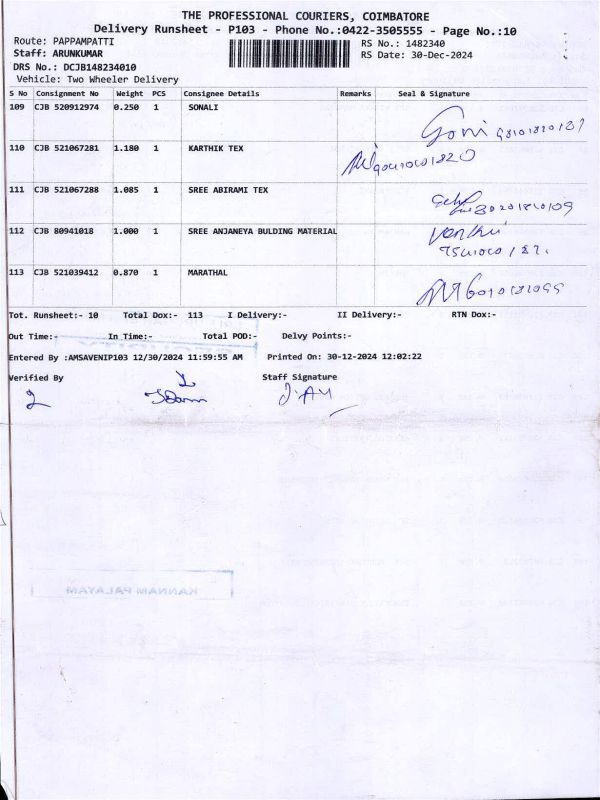 THE PROFESSIONAL COURIERS, COIMBATORE
Delivery Runsheet - P103 - Phone No.:0422-3505555 - Page No.:10
Route: PAPPAMPATTI RS No.: 1482340
Staff: ARUNKUMAR RS Date: 30-Dec-2024
DRS No.: DCJB148234010
Vehicle: Two Wheeler Delivery
S No Consignment No Weight PCS Consignee Details Remarks Seal & Signature
109 CJB 520912974 0.250 1 SONALI
110 CJB 521067281 1.180 1 KARTHIK TEX
111 CJB 521067288 1.085 1 SREE ABIRAMI TEX
112 CJB 80941018 1.000 1 SREE ANJANEYA BULDING MATERIAL
113 CJB 521039412 0.870 1 MARATHAL
Tot. Runsheet:- 10 Total Dox:- 113 I Delivery:- II Delivery:- RTN Dox:-
Out Time:- In Time:- Total POD:- Delvy Points:-
Entered By :AMSAVENIP103 12/30/2024 11:59:55 AM Printed On: 30-12-2024 12:02:22
Verified By Staff Signature
KANNAM PALAYAM